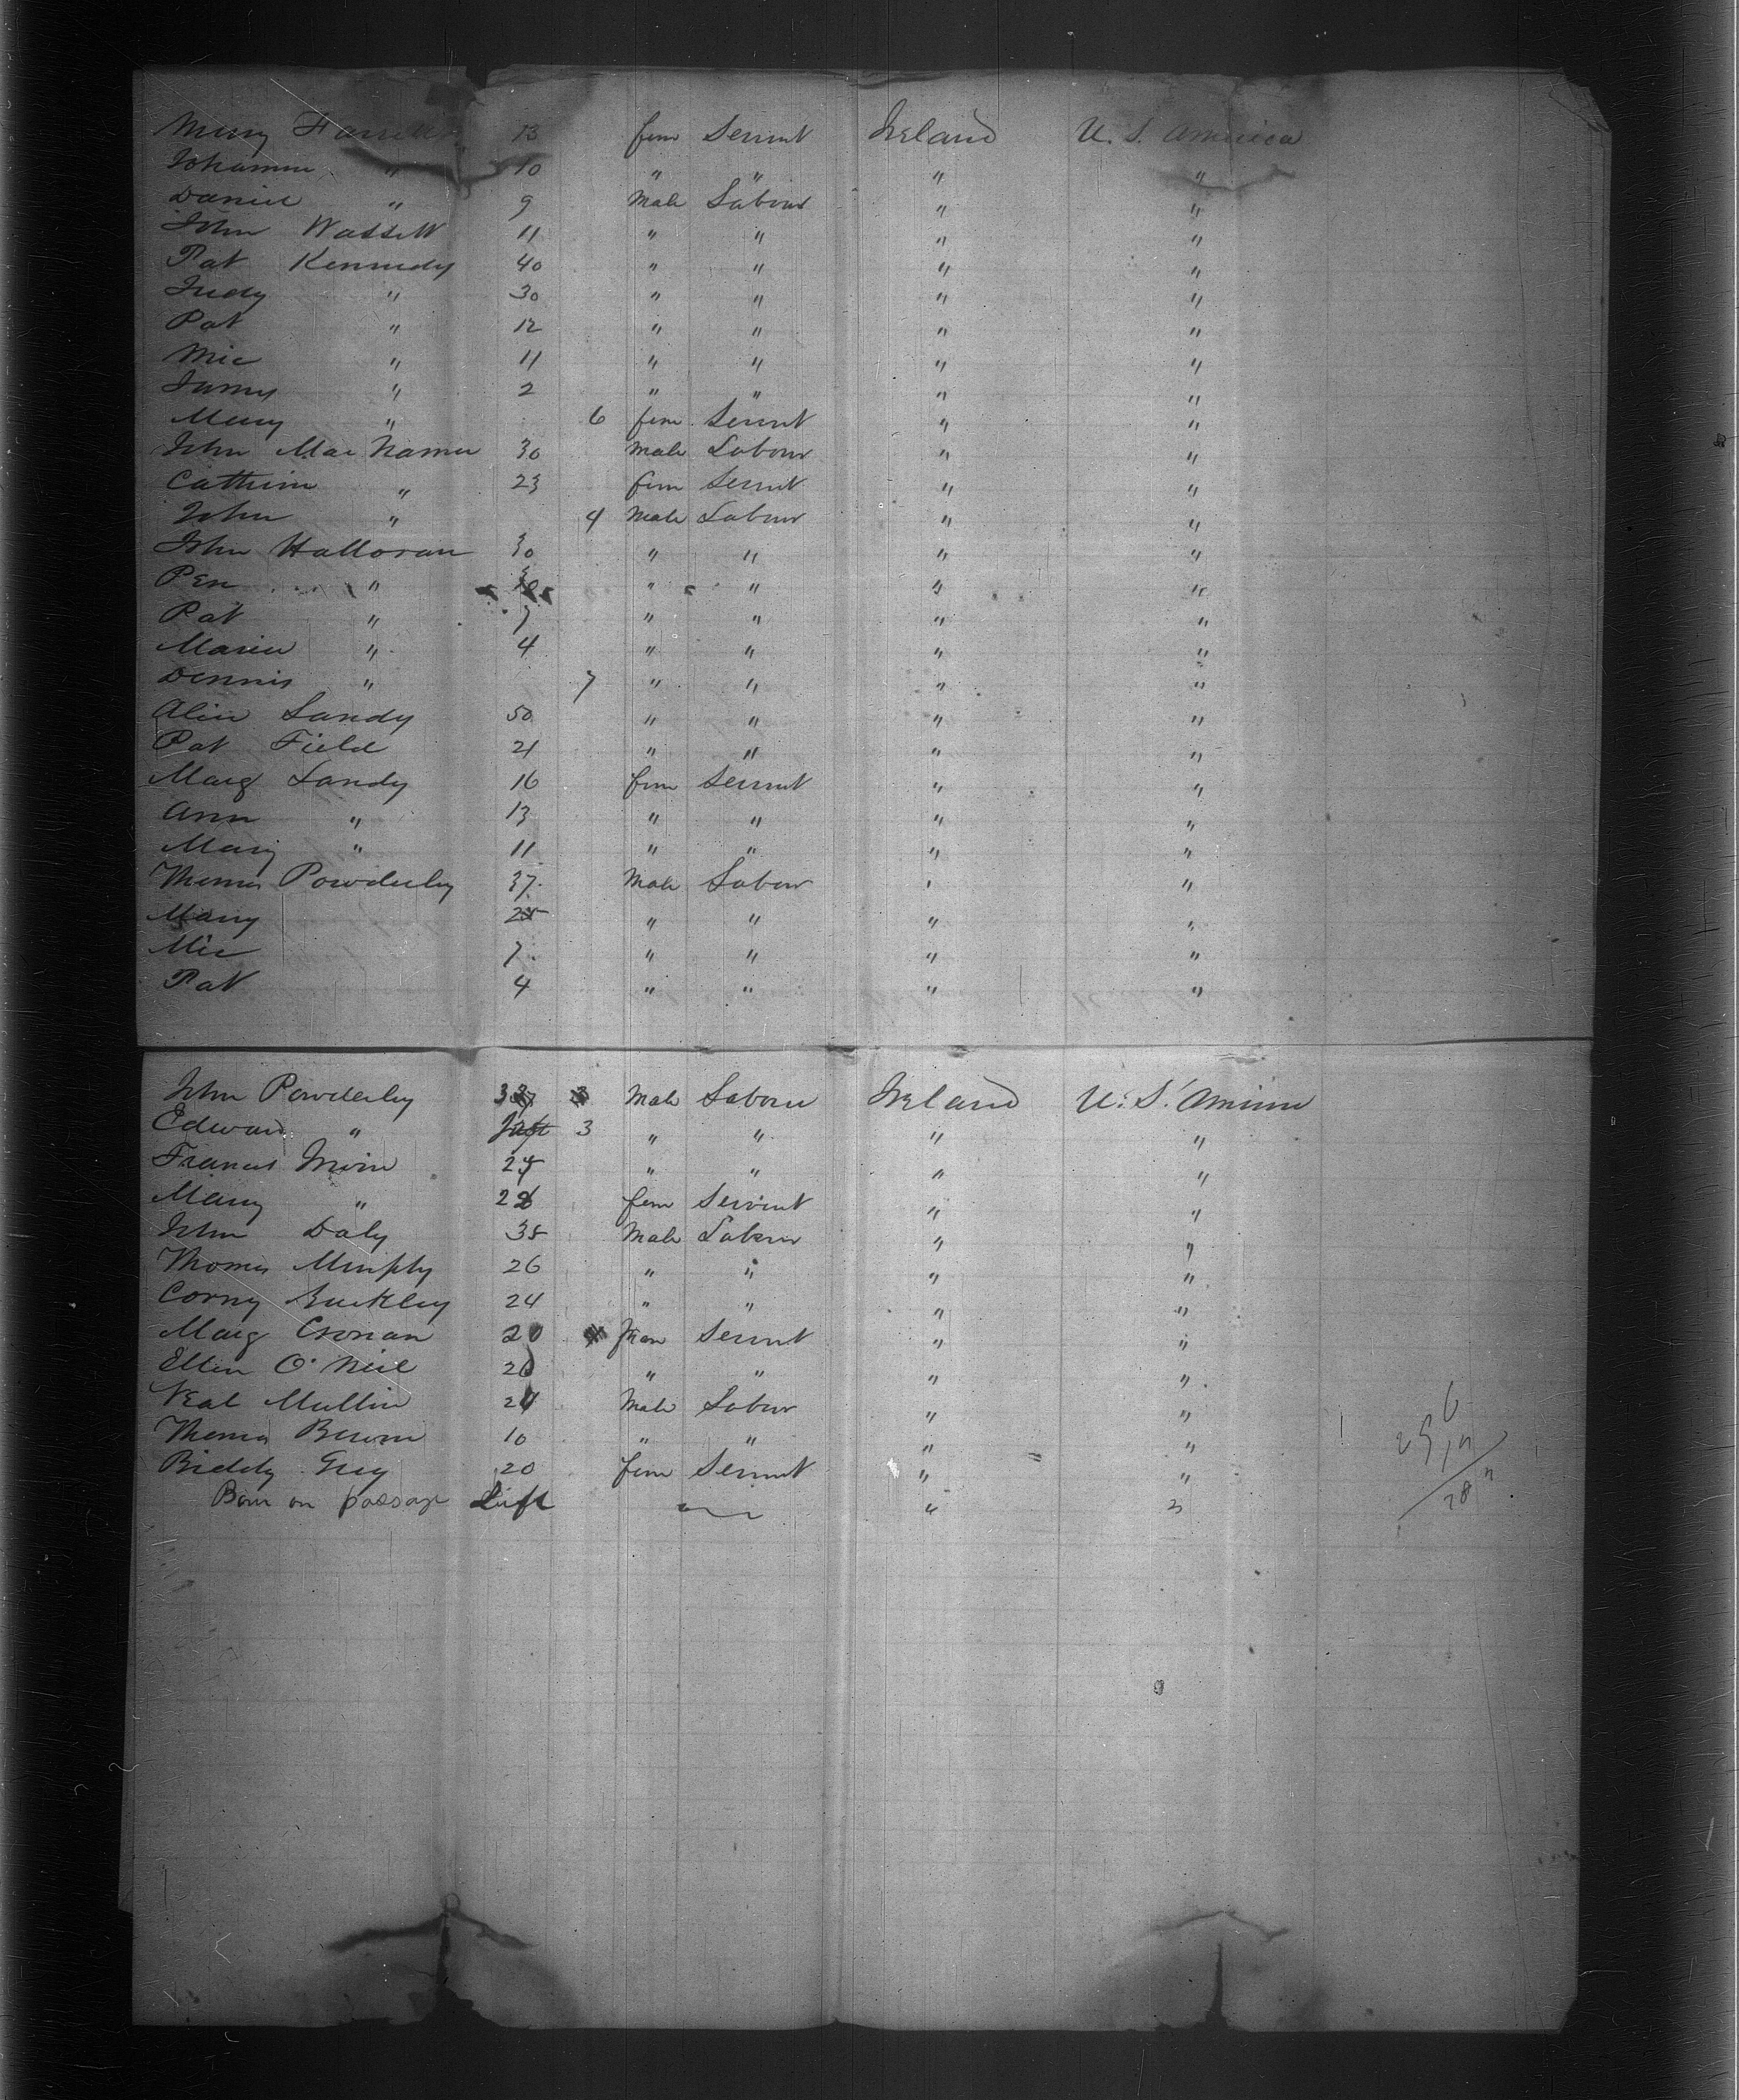 Mary Farrell 13 fem Servnt Ireland U. S. America
Johanna " 10 " " " "
Daniel " 9 Male Labour " "
John Wassell 11 " " " "
Pat Kennedy 40 " " " "
Judy " 30 " " " "
Pat " 12 " " " "
Mic " 11 " " " "
James " 2 " " " "
Mary " 6 fem Servnt " "
John Mac Namar 30 Male Labour " "
Cathrin " 23 fem Servnt " "
John " 4 Male Labour " "
John Halloran 30 " " " "
" " " " "
Pat " 7 " " " "
" 4 " " " "
Dennis " 7 " " " "
Sandy 50 " " " "
Pat Field 21 " " " "
Marg Sandy 16 fem Servnt " "
Ann " 13 " " " "
Mary " 11 " " " "
Thomas Powderley 37 Male Labour " "
Mary " " " "
Mic 7 " " " "
Pat 4 " " " "
John Powderley Male Labour Ireland U. S. America
Edward " 3 " " " "
Francis Irvin " " " "
Mary " fem Servint " "
John Daly 35 Male Labour " "
Thomas Murphy 26 " " " "
Corny Buckley 24 " " " "
Marg Cronan 20 fem Servnt " "
Ellen O'Neil " " " "
Neal Mullin Male Labour " "
Thomas 10 " " " "
Biddy 20 fem Servnt " "
Born on passage " "